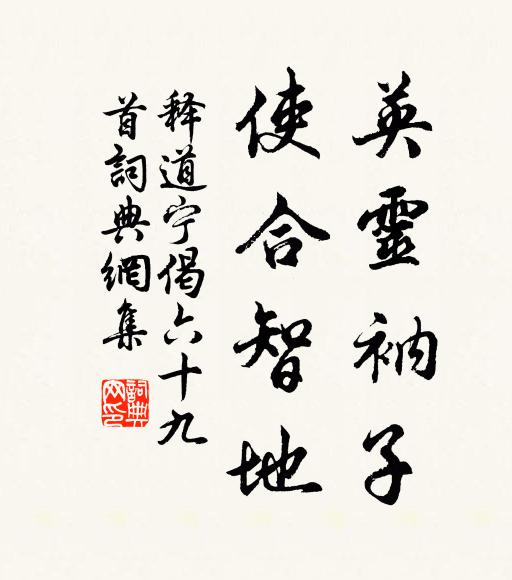 英靈衲子
使合智地
释道宁偈六十九
首詞典網集
詞典
网印